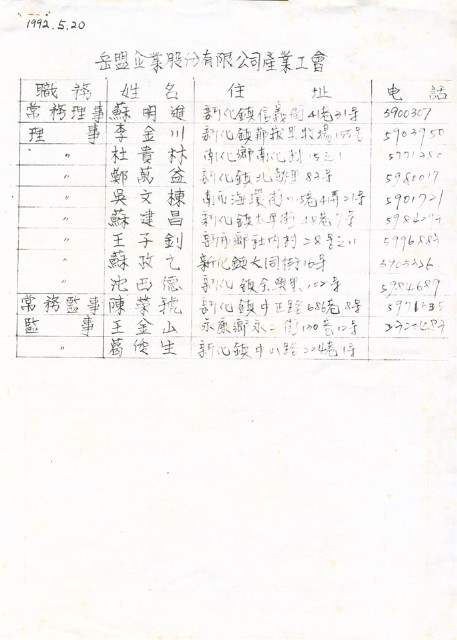 1992.5.20
岳盟企業股份有限公司產業工會
職務 姓名 住址 電話
常務理事 蘇明進 新化鎮信義街41巷31号 5900307
理事 李金川 新化鎮 里牧場 号 5903950
〃 杜貴林 南化鄉南化村15之1 5771280
〃 鄭萬益 新化鎮北勢里82号 5980017
〃 吳文棟 南市海環街 巷4弄21号 5901721
〃 蘇建昌 新化鎮太平街 巷 号
〃 王子釗 新市鄉社內村28号之11 5996883
〃 蘇政乞 新化鎮大同街16号
〃 沈西德 新化鎮全興里102号 5984689
常務監事 陳榮 新化鎮中正路686巷8号
監事 王金山 永康鄉永二街130巷12号
〃 葛俊生 新化鎮中山路224巷1号